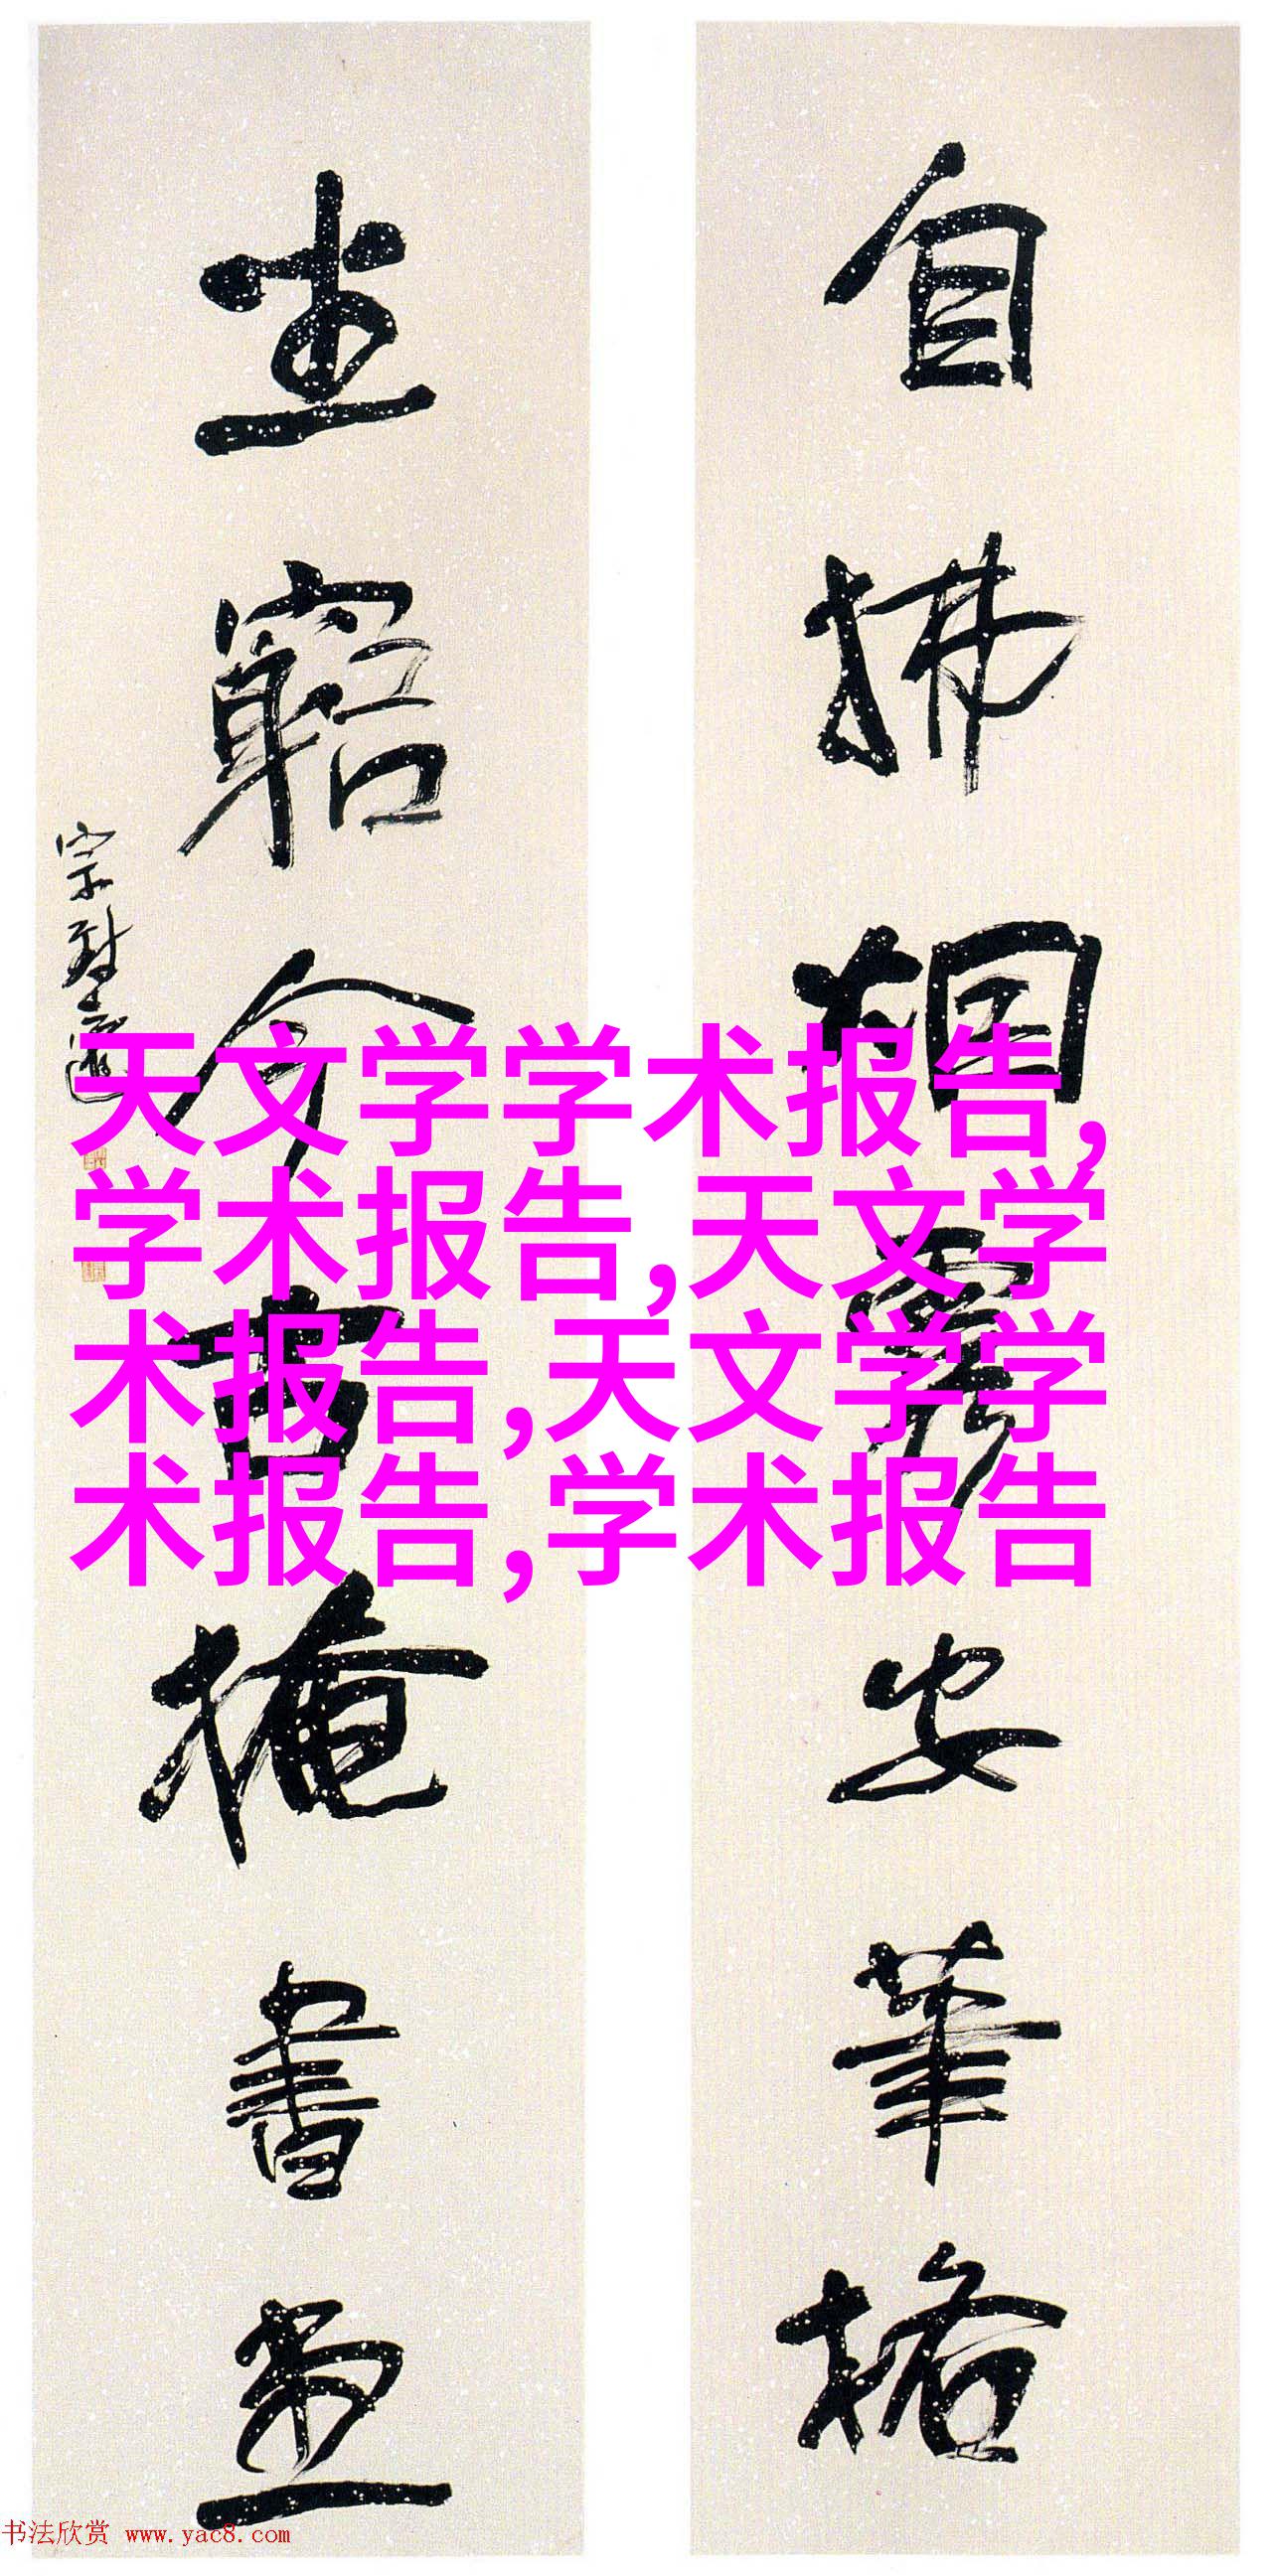 自拂烟霞安筆格
坐窮今古掩書堂
天文学学术报告,
学术报告,天文学
术报告,天文学学
术报告,学术报告
书法欣赏 www.yac8.com